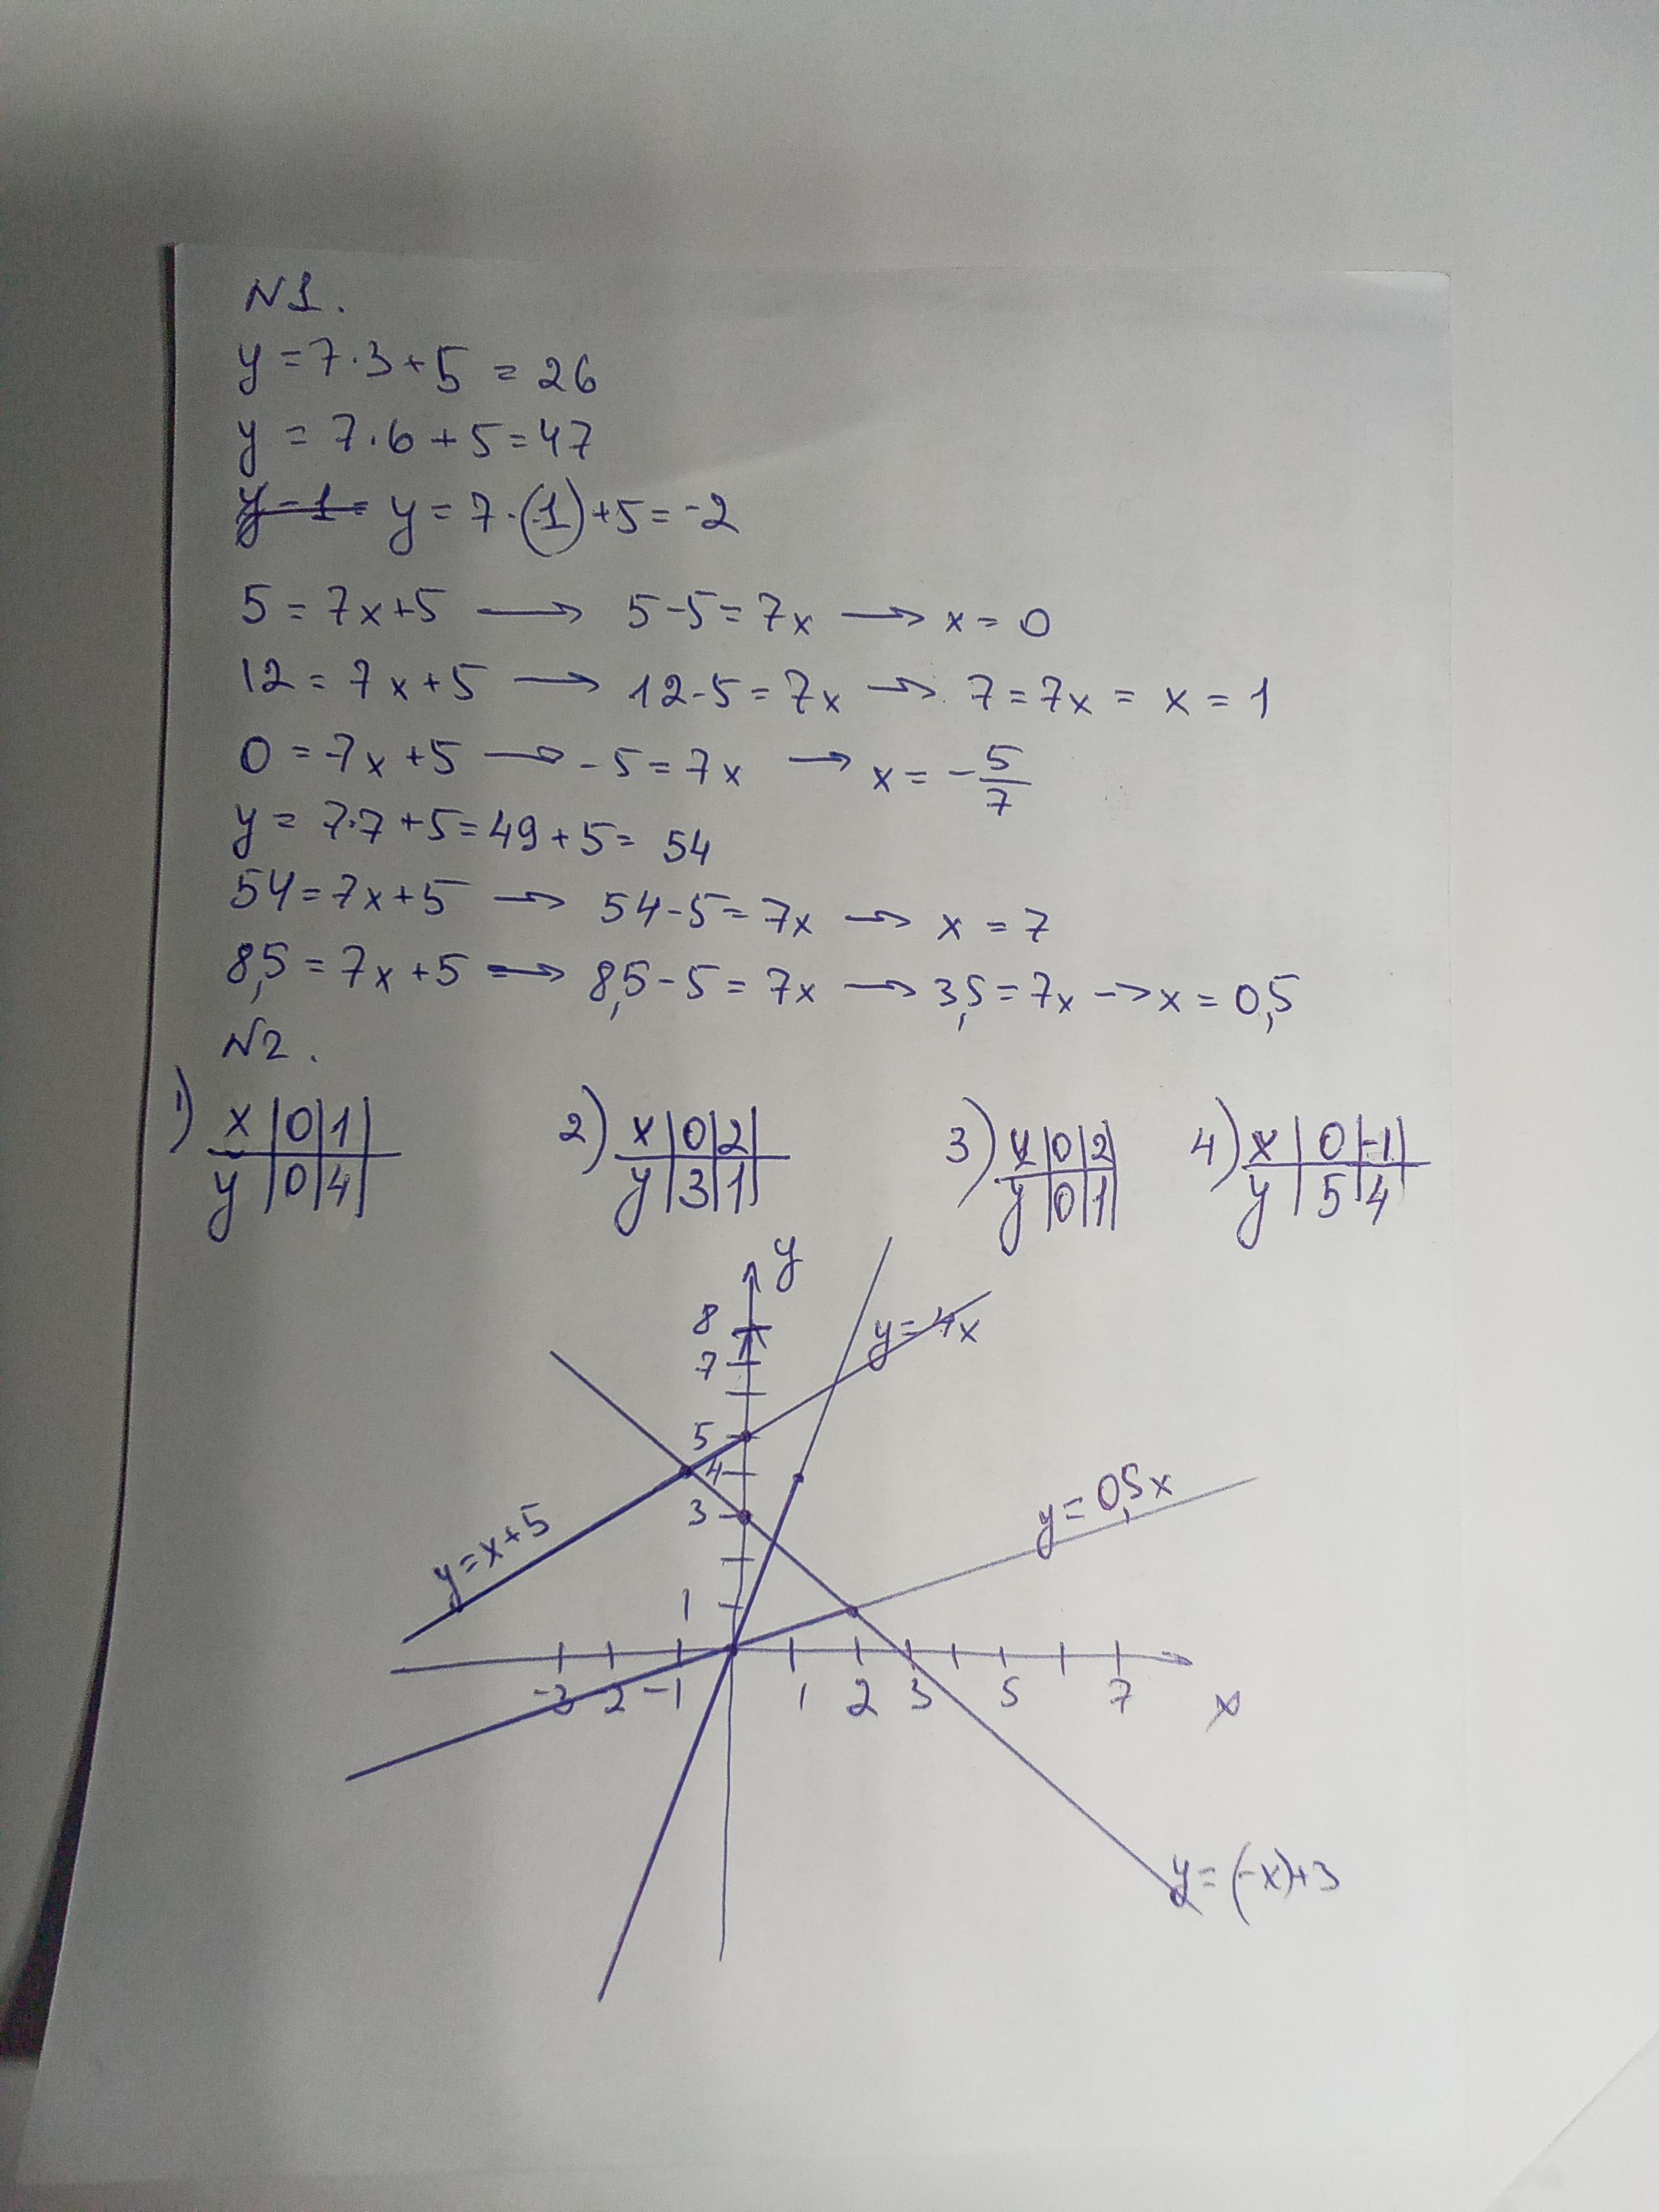 N1.
y = 7·3+5 = 26
y = 7·6+5=47
y = 7·(-1)+5=-2
5=7x+5 → 5-5=7x → x=0
12=7x+5 → 12-5=7x → 7=7x = x=1
0=7x+5 → -5=7x → x=-5/7
y= 7·7+5=49+5= 54
54=7x+5 → 54-5=7x → x=7
8,5=7x+5 → 8,5-5=7x → 3,5=7x → x=0,5
N2.
1) x|0|1| 2) x|0|2| 3) x|0|2| 4) x|0|-1|
y|0|4| y|3|1| y|0|1| y|5|4|
y
8
y=4x
7
5
4
y=0,5x
3
y=x+5
1
-3 -2 -1 1 2 3 5 7 x
y=(-x)+3